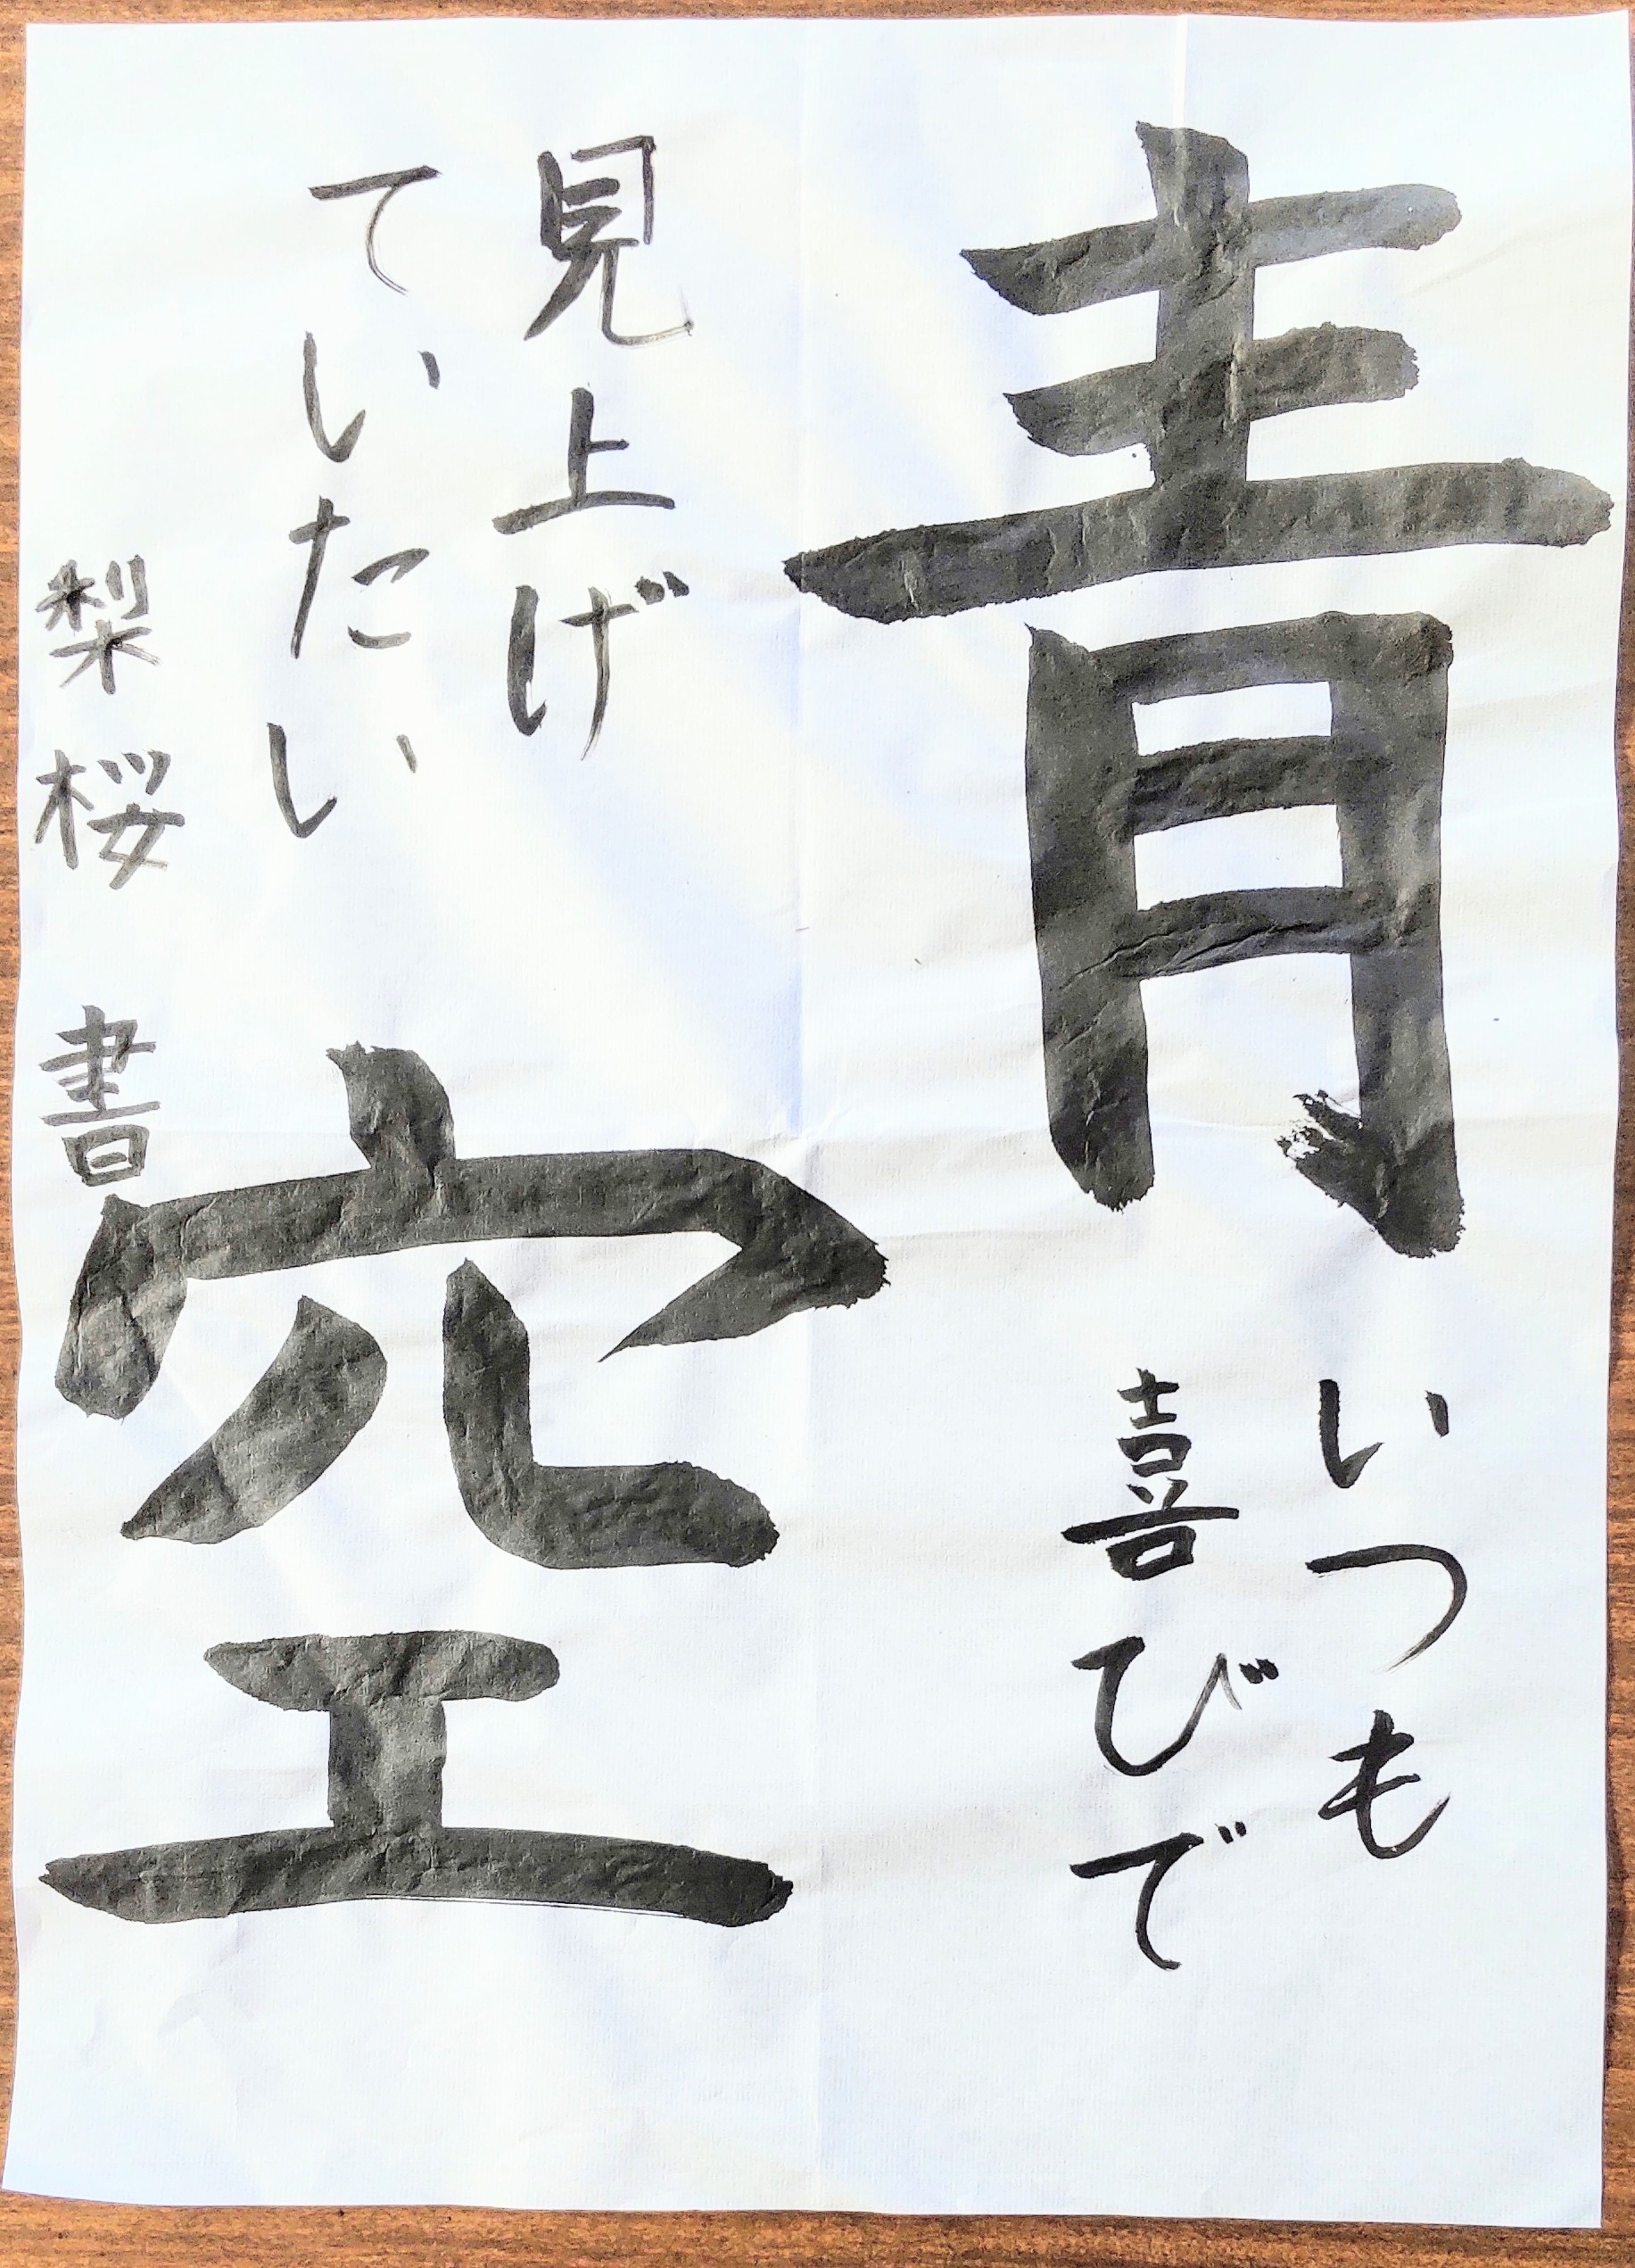 青
いつも
喜びで
見上げ
ていたい
空
梨桜 書